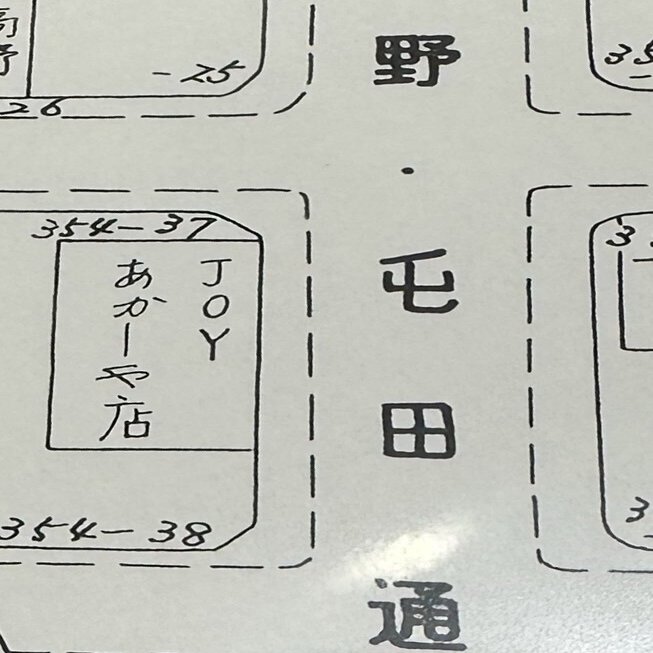 高野
-25
26
野・屯田通
35
354-37
JOY
あかしや店
354-38
3
3